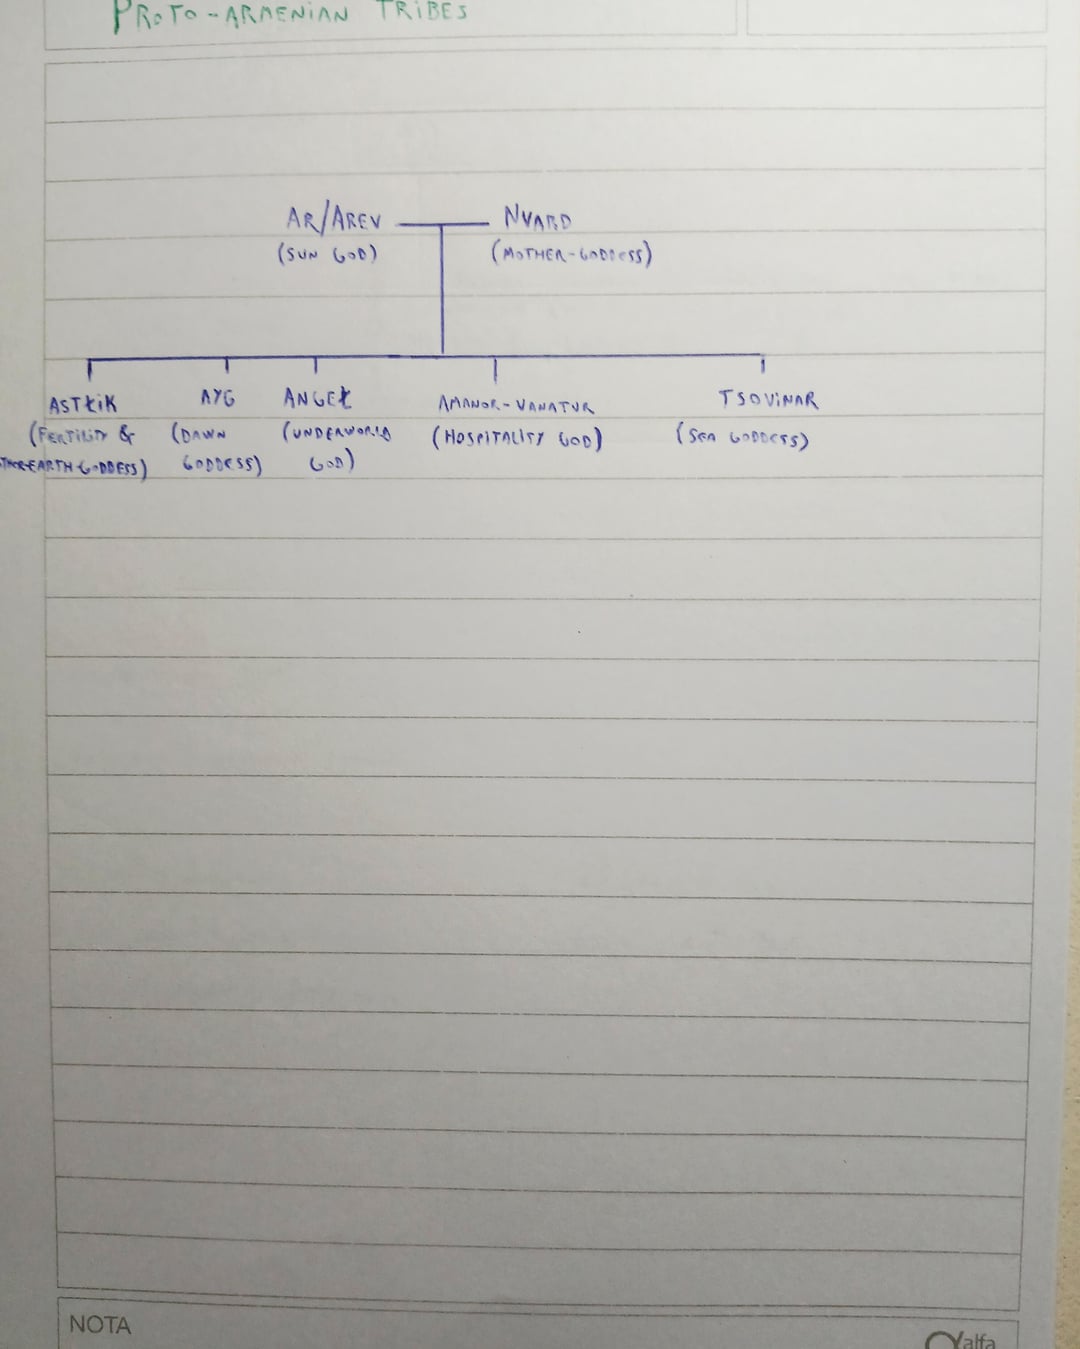 PROTO-ARMENIAN TRIBES
AR/AREV NVARD
(SUN GOD) (MOTHER-GODDESS)
ASTŁIK AYG ANGEŁ AMANOR-VANATUR TSOVINAR
(FERTILITY & (DAWN (UNDERWORLD (HOSPITALITY GOD) (SEA GODDESS)
EARTH-GODDESS) GODDESS) GOD)
NOTA
alfa